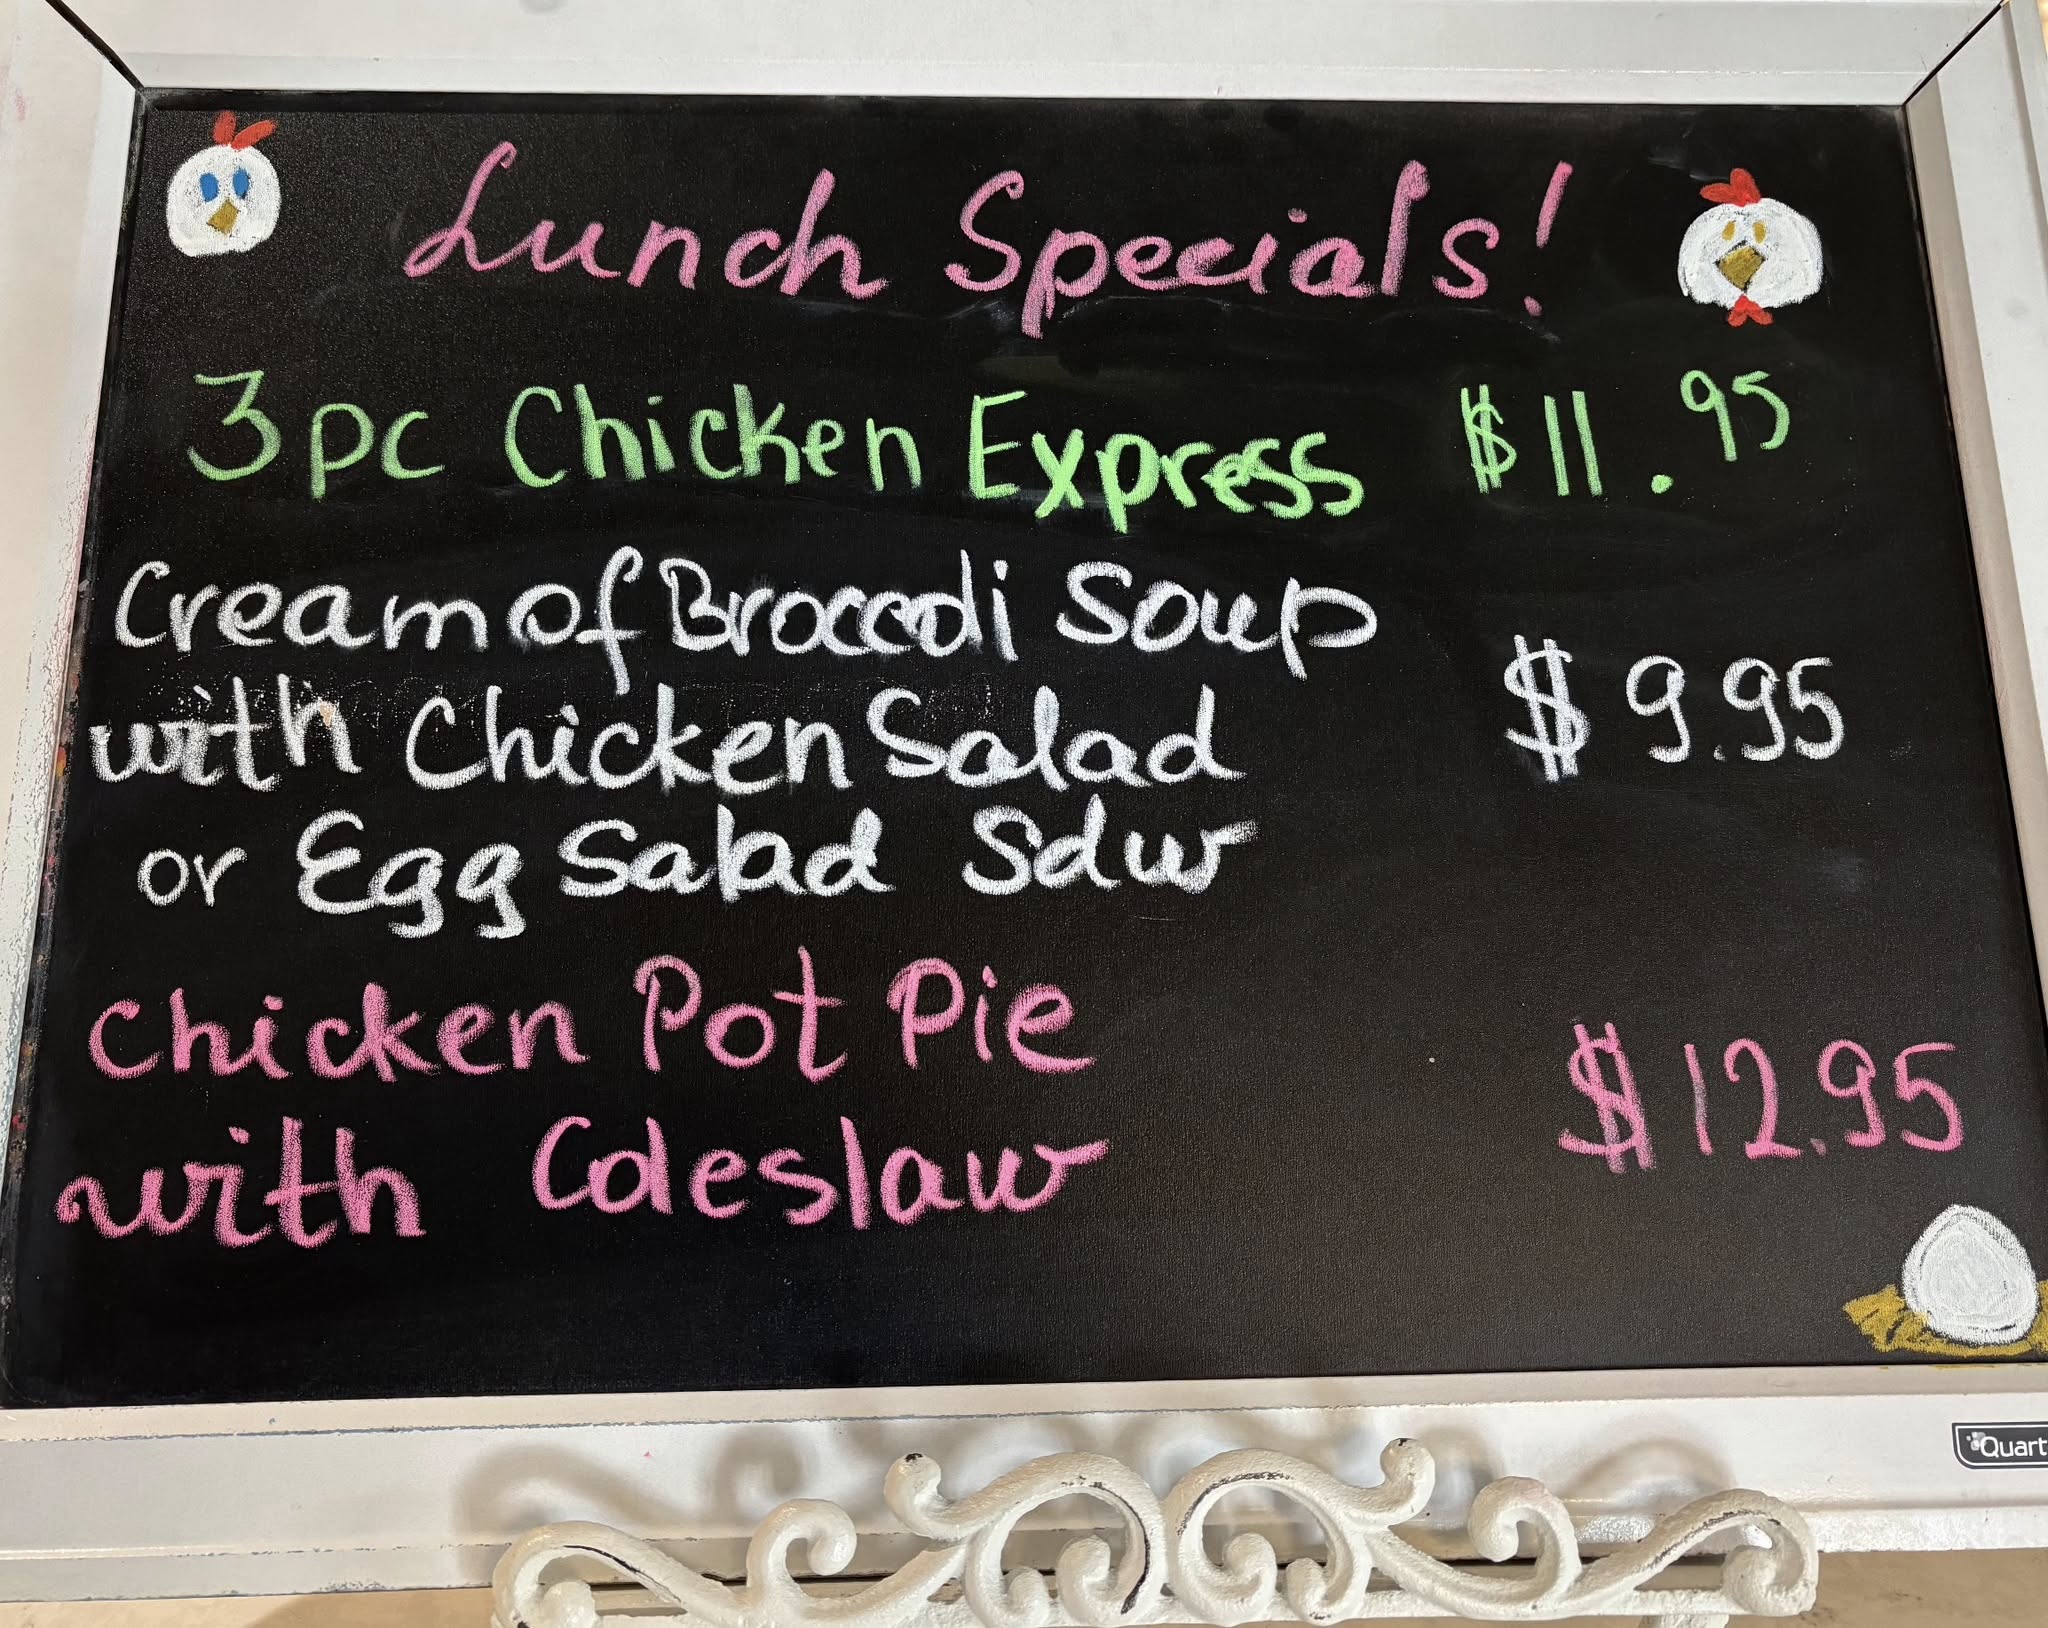 Lunch Specials!
3pc Chicken Express $11.95
Cream of Broccoli Soup
with Chicken Salad $9.95
or Egg Salad Sdw
Chicken Pot Pie
with Coleslaw $12.95
Quart